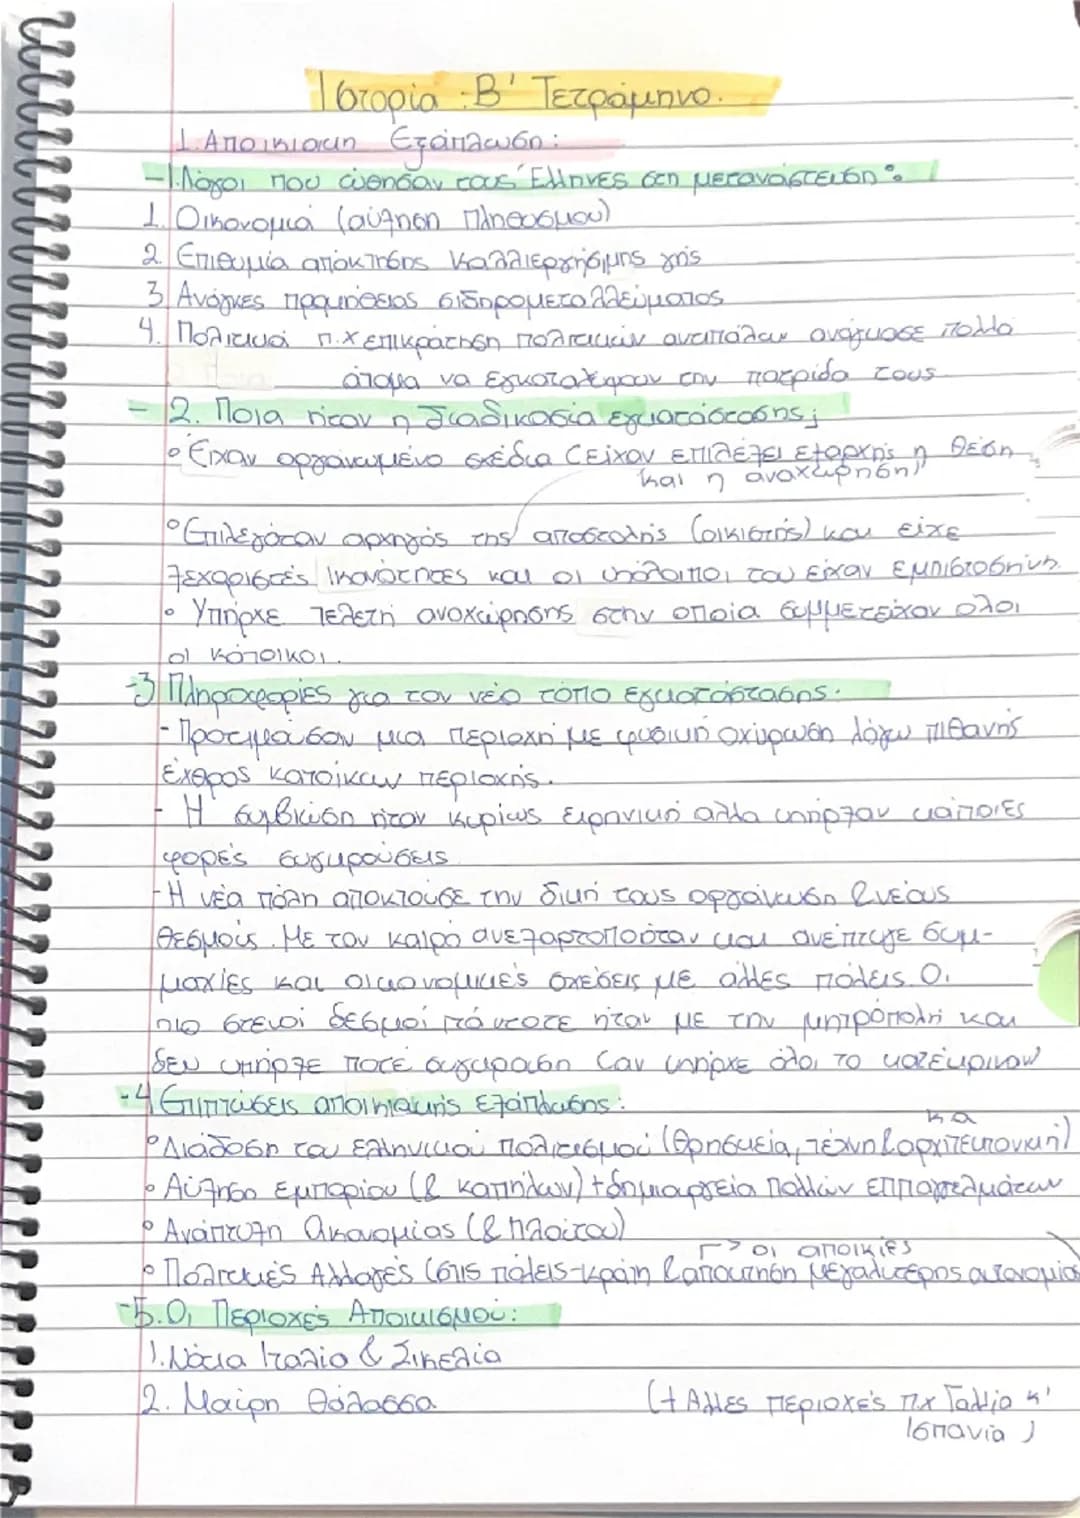 Ιστορία : Β' Τετράμηνο.
1. Αποικιακη Εξάπλωση :
-1. Λόγοι που ώθησαν τους Έλληνες στη μετανάστευση :
1. Οικονομιά (αύξηση πληθυσμου)
2. Επιθυμία απόκτησης καλλιεργήσιμης γής
3. Ανάγκες προμήθειας σιδηρομεταλλεύματος
4. Πολιτικοί π.χ επικράτηση πολιτικών αντιπάλων ανάγκασε πολλά
άτομα να εγκαταλείψουν την πατρίδα τους
- 2. Ποια ήταν η διαδικασία εγκατάστασης;
• Είχαν οργανωμένο σχέδιο (είχαν επιλέξει εξαρχής η θέση
και η αναχώρηση)
• Επιλεγόταν αρχηγός της αποστολής (οικιστής) και είχε
ξεχωριστές ικανότητες και οι υπόλοιποι του είχαν εμπιστοσύνη.
• Υπήρχε τελετή αναχώρησης στην οποία συμμετείχαν ολοι
οι κάτοικοι.
-3 Πληροφορίες για τον νέο τόπο εγκατάστασης.
- Προτιμούσαν μια περιοχή με φυσική οχύρωση λόγω πιθανής
έχθρας κατοίκων περιοχής.
- Η συμβίωση ήταν κυρίως ειρηνική αλλα υπήρξαν κάποιες
φορές συγκρούσεις
- Η νέα πόλη αποκτούσε την δική τους οργάνωση & νέους
θεσμούς. Με τον καιρό ανεξαρτοποιόταν και ανέπτυξε συμ-
μαχίες και οικονομικές σχέσεις με άλλες πόλεις. Οι
πιο στενοί δεσμοί πάντοτε ήταν με την μητρόπολη και
δεν υπήρξε ποτέ συγκρουση (αν υπήρχε όλοι το κατέκριναν
-4 Επιπτώσεις αποικιακής εξάπλωσης :
κα
• Διάδοση του ελληνικού πολιτισμού (θρησκεία, τέχνη & αρχιτεκτονική)
• Αύξηση εμπορίου (& καπήλων) + δημιουργεία πολλών επαγγελμάτων
• Ανάπτυξη Οικονομίας (& πλούτου)
→ οι αποικίες
• Πολιτικές Αλλαγές (στις πόλεις-κράτη & απαίτηση μεγαλύτερης αυτονομίας
-5. Οι Περιοχές Αποικισμού :
1. Νότια Ιταλία & Σικελία
2. Μαύρη Θάλασσα (+ Άλλες περιοχές π.χ Γαλλία κ'
Ισπανία )